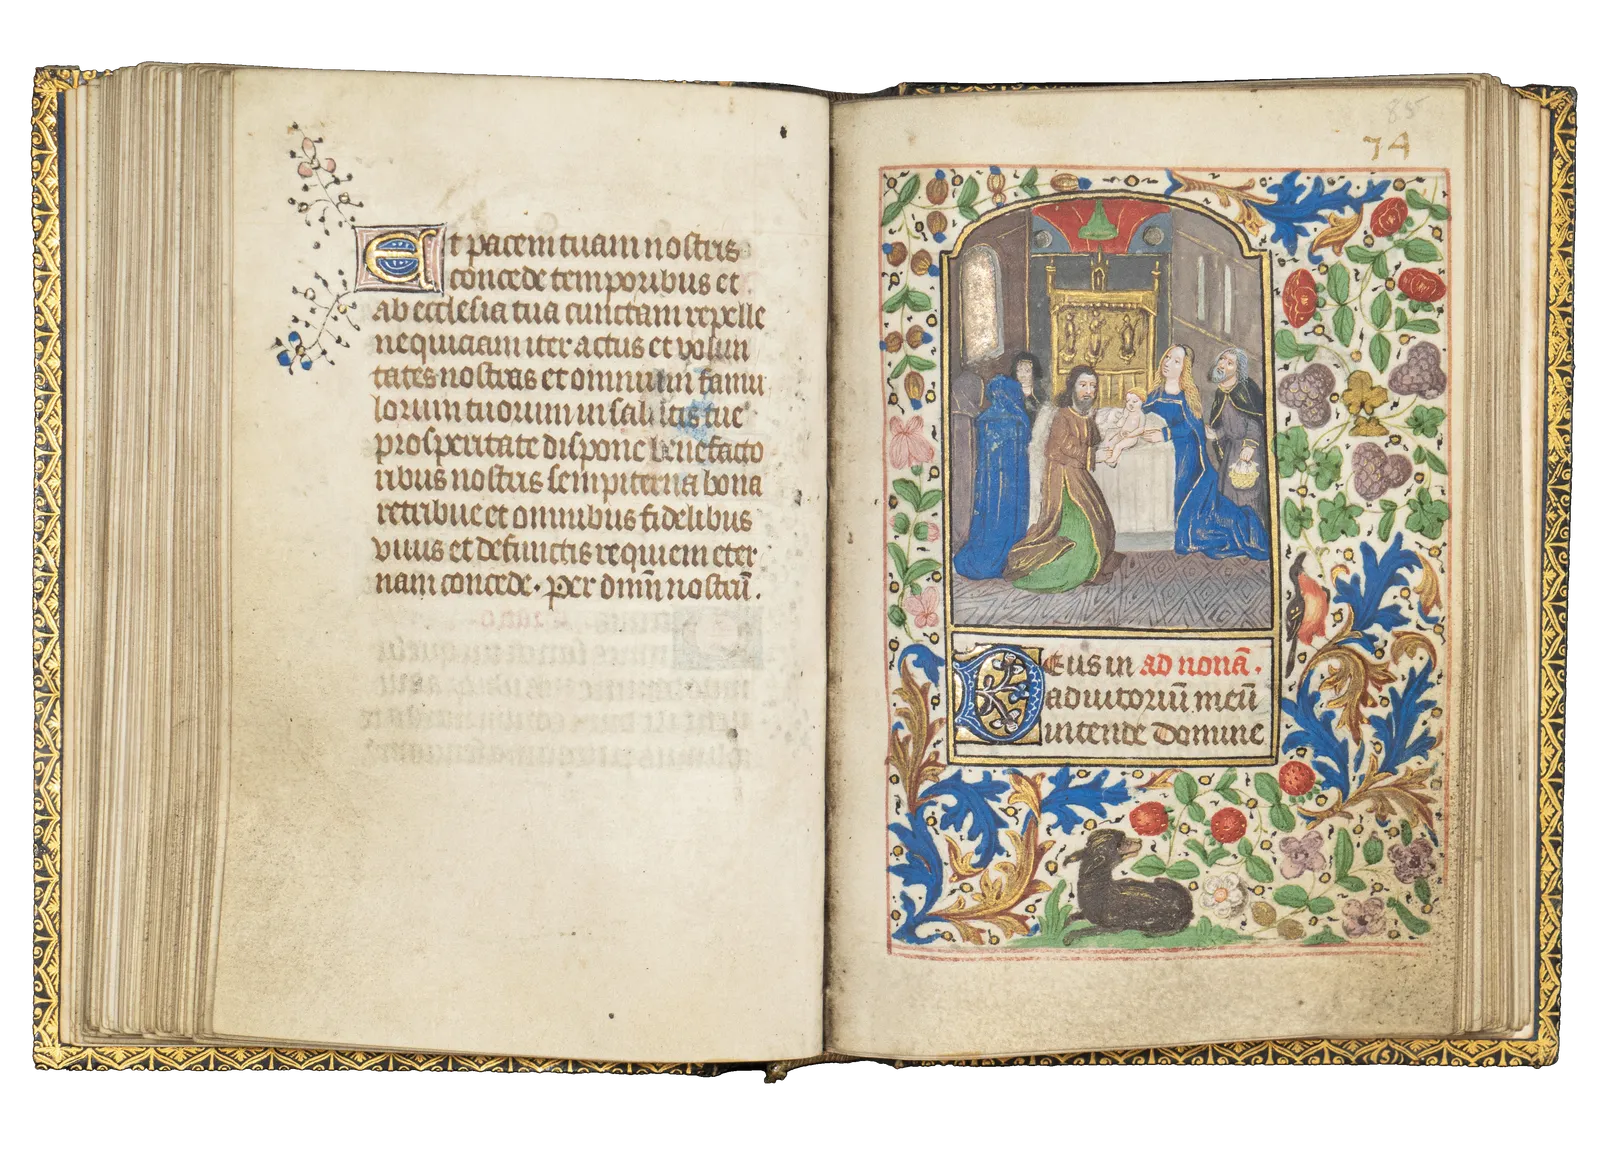 Et pacem tuam nostris
concede temporibus et
ab ecclesia tua cunctam repelle
nequiciam iter actus et volun
tates nostras et omnium famu
lorum tuorum in salutis tue
prosperitate dispone benefacto
ribus nostris sempiterna bona
retribue et omnibus fidelibus
vivis et defunctis requiem eter
nam concede. per dnm̄ nostrū.
85
74
Deus in ad nonā.
adiutoriū meū
intende Domine